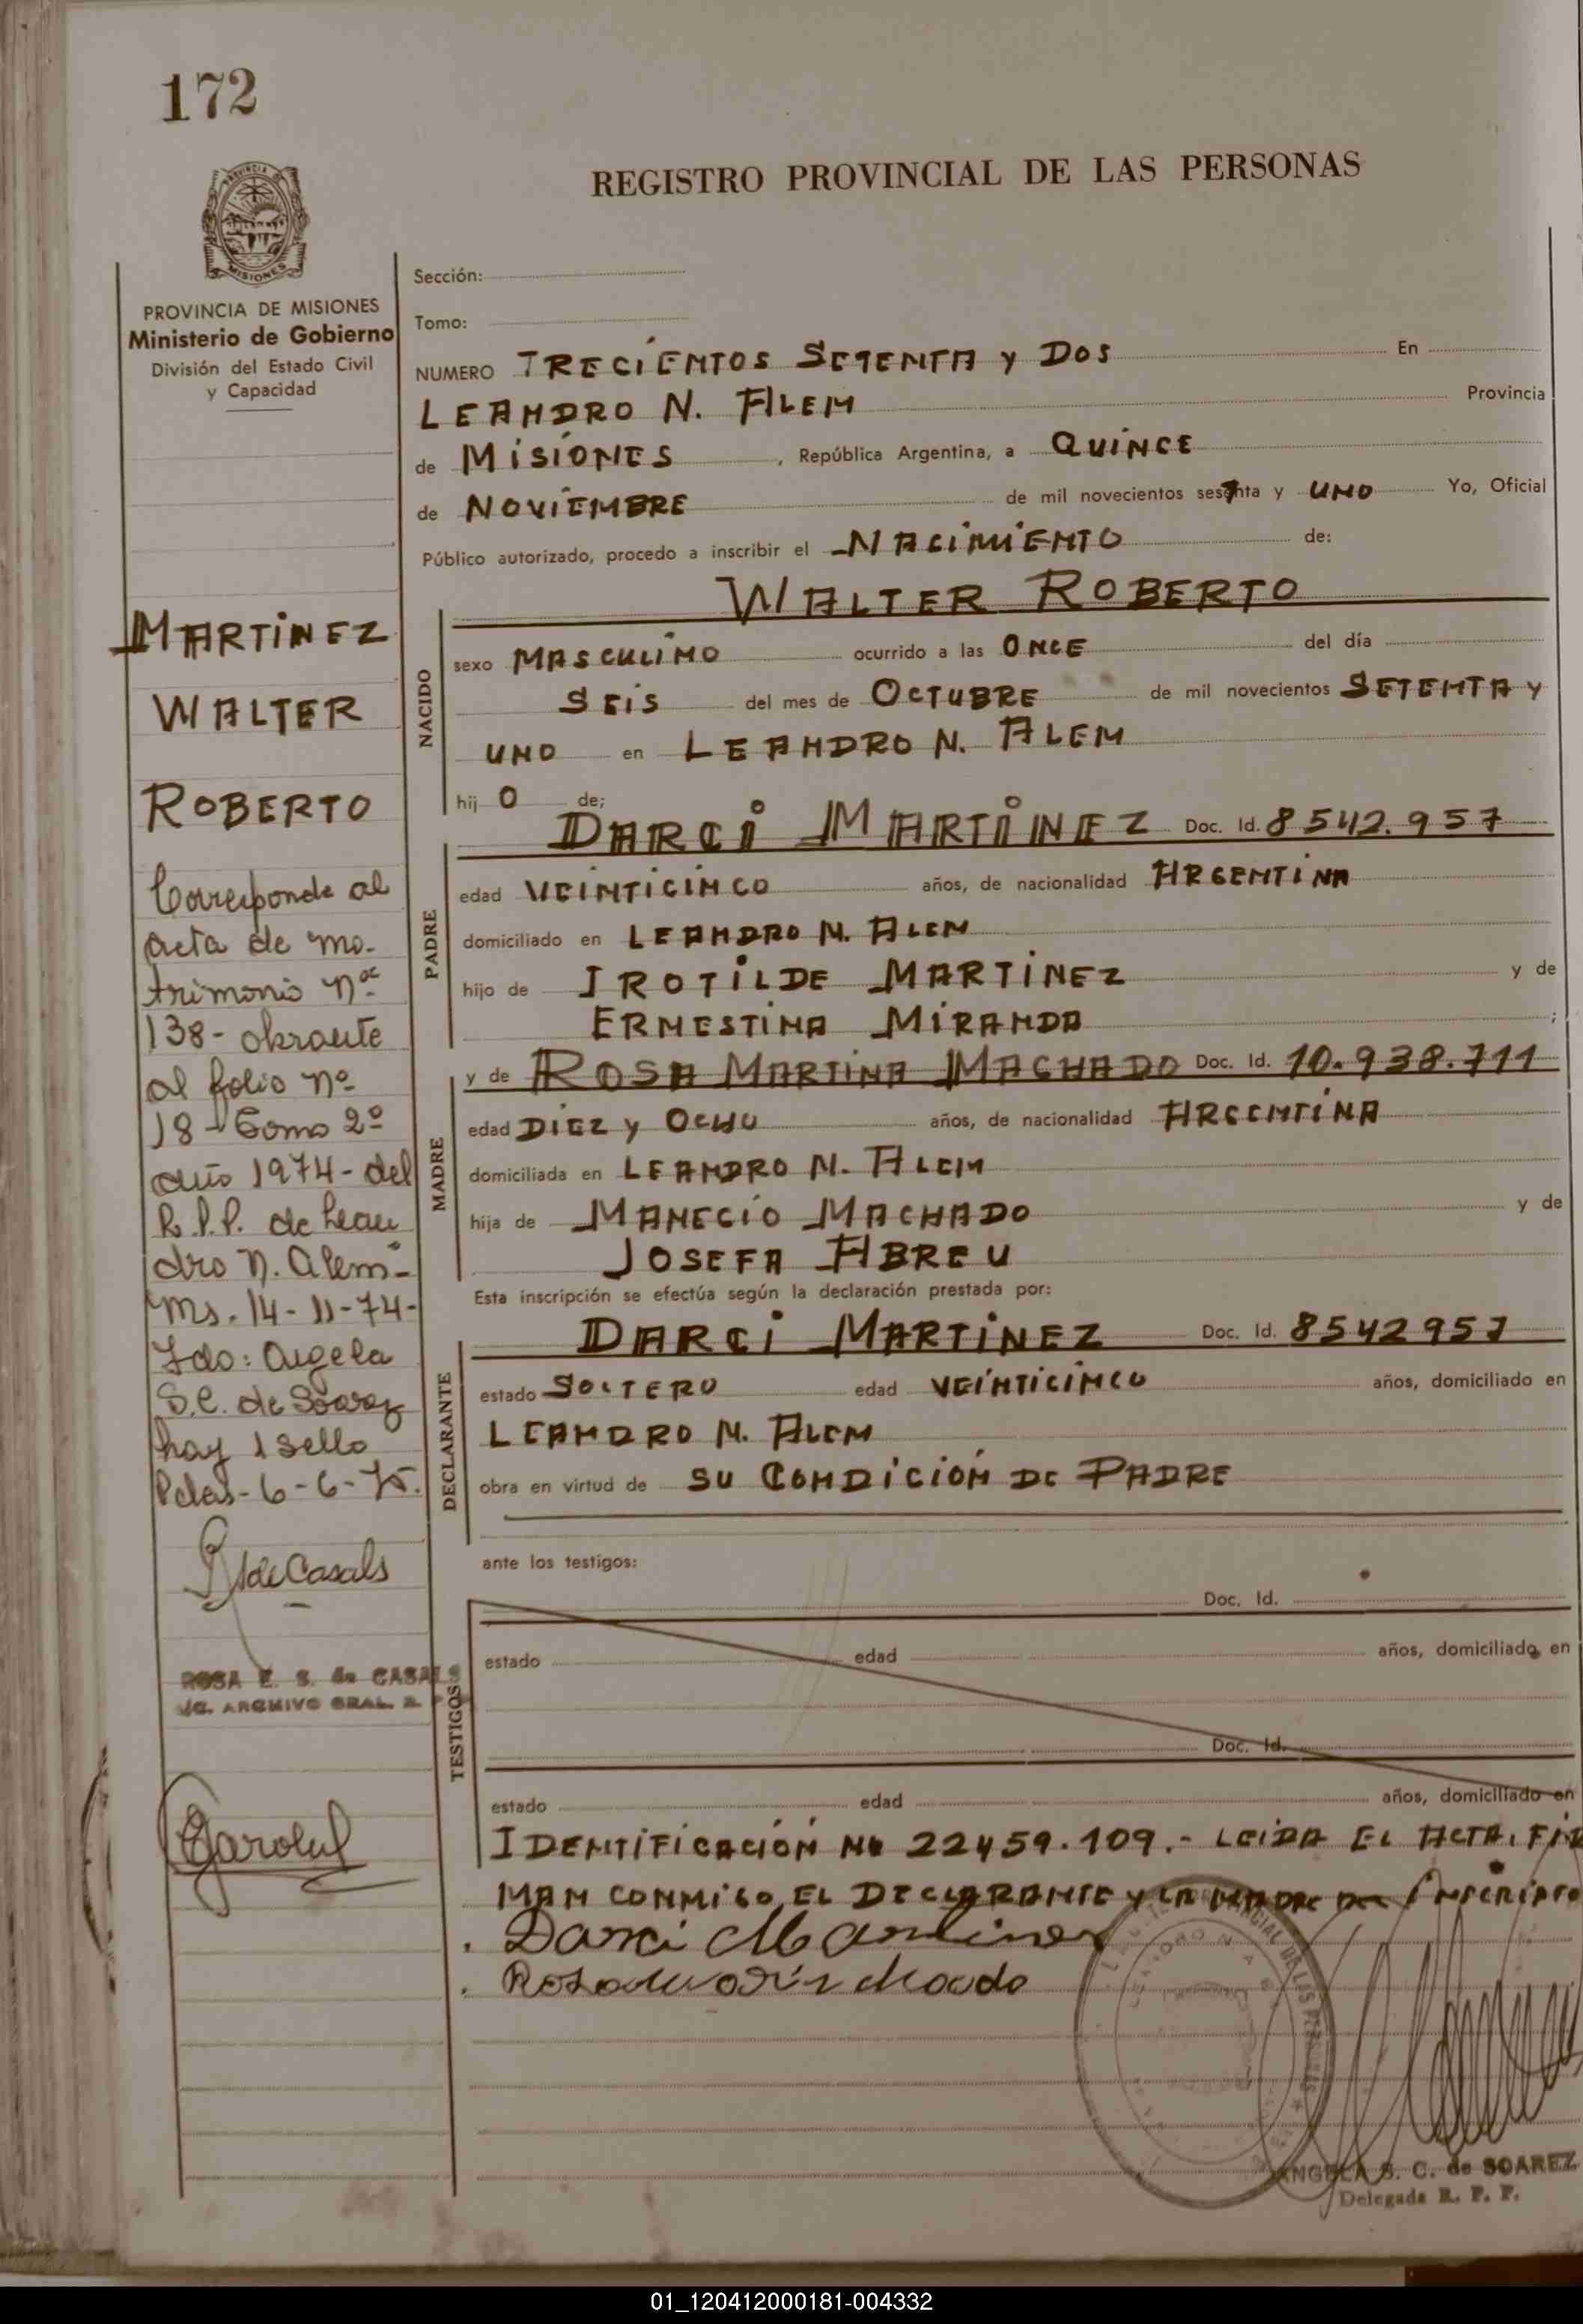 172
REGISTRO PROVINCIAL DE LAS PERSONAS
PROVINCIA DE
MISIONES
PROVINCIA DE MISIONES
Ministerio de Gobierno
División del Estado Civil
y Capacidad
MARTINEZ
WALTER
ROBERTO
Corresponde al
acta de ma-
trimonio nº
138- obrante
al folio nº
18- Tomo 2º
año 1974- del
R.P.P. de Lean
dro N. Alem-
Ms. 14-11-74-
Fdo: Angela
S.C. de Soarez
hay 1 sello
Pdas-6-6-75.
de Casals
ROSA E. S. de CASALS
ARCHIVO GRAL. R.
Sección:
Tomo:
NUMERO TRECIENTOS SETENTA Y DOS En
LEANDRO N. ALEM Provincia
de MISIONES, República Argentina, a QUINCE
de NOVIEMBRE de mil novecientos sesenta y UNO Yo, Oficial
Público autorizado, procedo a inscribir el NACIMIENTO de:
WALTER ROBERTO
NACIDO
sexo MASCULINO ocurrido a las ONCE del día
SEIS del mes de OCTUBRE de mil novecientos SETENTA Y
UNO en LEANDRO N. ALEM
hij O de;
DARCI MARTINEZ Doc. Id. 8542.957
PADRE
edad VEINTICINCO años, de nacionalidad ARGENTINA
domiciliado en LEANDRO N. ALEM
hijo de IROTILDE MARTINEZ y de
ERNESTINA MIRANDA ;
y de ROSA MARTINA MACHADO Doc. Id. 10.938.711
MADRE
edad DIEZ Y OCHO años, de nacionalidad ARGENTINA
domiciliada en LEANDRO N. ALEM
hija de MANECIO MACHADO y de
JOSEFA ABREU
Esta inscripción se efectúa según la declaración prestada por:
DARCI MARTINEZ Doc. Id. 8542957
DECLARANTE
estado SOLTERO edad VEINTICINCO años, domiciliado en
LEANDRO N. ALEM
obra en virtud de SU CONDICIÓN DE PADRE
ante los testigos:
Doc. Id.
TESTIGOS
estado edad años, domiciliado en
Doc. Id.
estado edad años, domiciliado en
IDENTIFICACIÓN No 22459.109.- LEIDA EL ACTA, FIR
MAN CONMIGO, EL DECLARANTE Y LA MADRE DEL INSCRIPTO
Darci Martinez
ANGELA S. C. de SOAREZ
Delegada R. P. P.
01_120412000181-004332